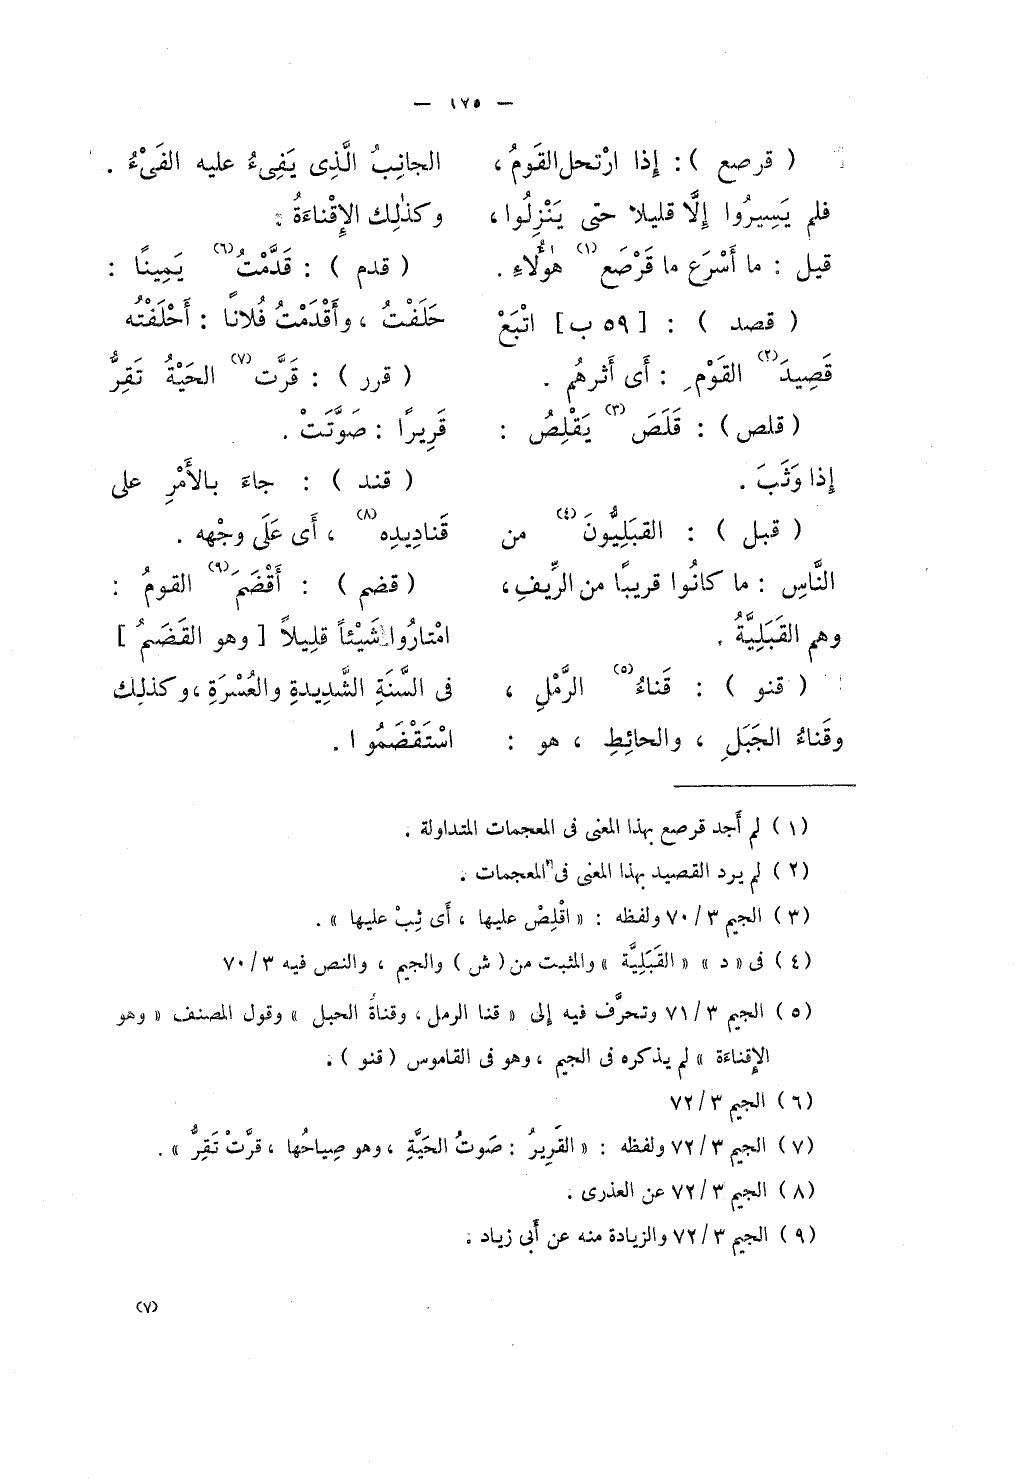 — ١٧٥ —
( قرصع ) : إِذا ارْتحل القَومُ ،
فلم يَسِيرُوا إِلَّا قليلا حتى يَنْزِلُوا ،
قيل : ما أَسْرَع ما قَرْصَع (١) هٰؤُلاءِ .
( قصد ) : [ ٥٩ ب ] اتْبَعْ
قَصِيدَ (٢) القَوْمِ : أَى أَثرهُم .
( قلص ) : قَلَصَ (٣) يَقْلِصُ :
إِذا وَثَبَ .
( قبل ) : القبَلِيُّونَ (٤) من
النَّاسِ : ما كانُوا قريبًا من الرِّيفِ ،
وهم القَبَلِيَّةُ .
( قنو ) : قَناءُ (٥) الرَّمْلِ ،
وقَناءُ الجَبَلِ ، والحائِطِ ، هو :
الجانِبُ الَّذِى يَفِىءُ عليه الفَىْءُ .
وكذٰلِك الإِقْناءَةُ :
( قدم ) : قَدَّمْتُ (٦) يَمِينًا :
حَلَفْتُ ، وأَقْدَمْتُ فُلانًا : أَحْلَفْتُه
( قرر ) : قَرَّت (٧) الحَيَّةُ تَقِرُّ
قَرِيرًا : صَوَّتَتْ .
( قند ) : جاءَ بالأَمْرِ على
قَنادِيدِه (٨) ، أَى عَلَى وجْهه .
( قضم ) : أَقْضَمَ (٩) القومُ :
امْتارُوا شَيْئاً قليلاً [ وهو القَضَمُ ]
فى السَّنَةِ الشَّدِيدةِ والعُسْرَةِ ، وكذلِك
اسْتَقْضَمُوا .
(١) لم أَجد قرصع بهذا المعنى فى المعجمات المتداولة .
(٢) لم يرد القصيد بهذا المعنى فى المعجمات .
(٣) الجيم ٣ / ٧٠ ولفظه : « اقْلِصْ عليها ، أَى ثِبْ عليها » .
(٤) فى « د » « القَبَلِيَّة » والمثبت من ( ش ) والجيم ، والنص فيه ٣ / ٧٠
(٥) الجيم ٣ / ٧١ وتحرَّف فيه إلى « قنا الرمل ، وقناةُ الحبل » وقول المصنف « وهو
الإِقناءَة » لم يذكره فى الجيم ، وهو فى القاموس ( قنو ) .
(٦) الجيم ٣ / ٧٢
(٧) الجيم ٣ / ٧٢ ولفظه : « القَرِيرُ : صَوتُ الحَيَّةِ ، وهو صِياحُها ، قرَّتْ تَقِرُّ » .
(٨) الجيم ٣ / ٧٢ عن العذرى .
(٩) الجيم ٣ / ٧٢ والزيادة منه عن أَبى زياد .
(٧)